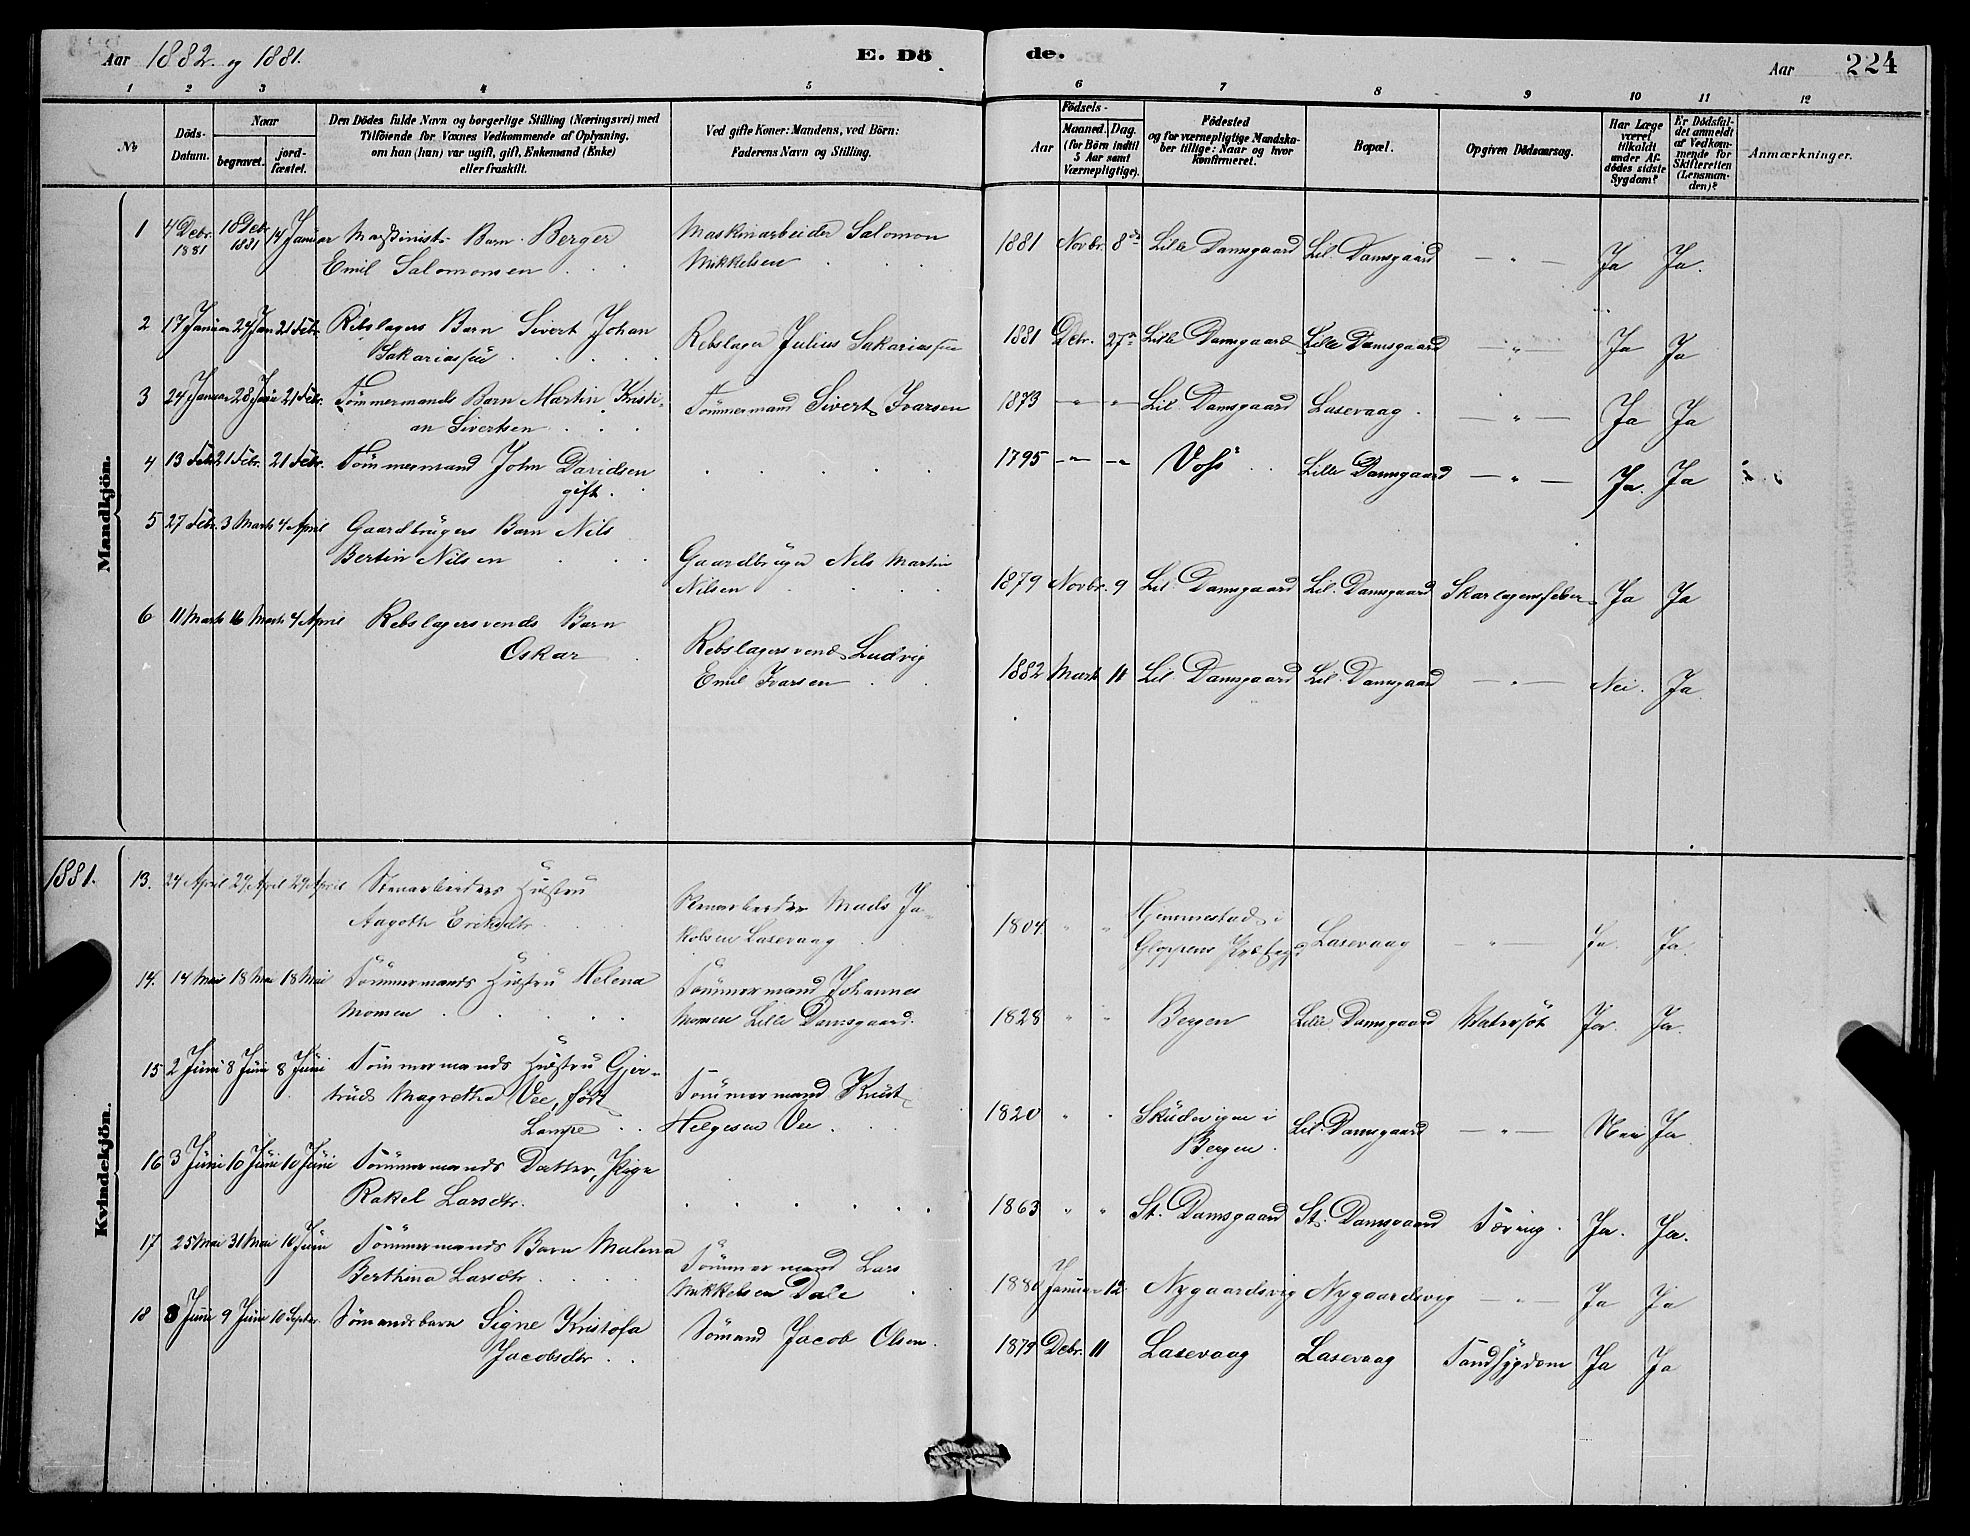 Aar 1882. og 1881.
E. Dö
de.
Aar
224
1 2 3 4 5 6 7 8 9 10 11 12
No
Döds-Datum.
Naar
begravet.
jord-fæstet.
Den Dödes fulde Navn og borgerlige Stilling (Næringsvei) med
Tilföiende for Voxnes Vedkommende af Oplysning,
om han (hun) var ugift, gift, Enkemand (Enke)
eller fraskilt.
Ved gifte Koner: Mandens, ved Börn:
Faderens Navn og Stilling.
Födsels-
Aar
Maaned. Dag.
(for Börn indtil
5 Aar samt
Værnepligtige).
Födested
og for værnepligtige Mandska-
ber tillige: Naar og hvor
Konfirmeret.
Bopæl.
Opgiven Dödsaarsag.
Har Læge
været
tilkaldt
under Af-
dödes sidste
Sygdom?
Er Dödsfal-
det anmeldt
af Vedkom-
mende for
Skifteretten
(Lensman-
den)?
Anmærkninger.
Mandkjön.
1 4 Debr. 1881 10 Debr 1881 14 Januar Maskinist Barn Berger
Emil Salomonsen
Maskinarbeider Salomon
Mikkelsen
1881 Novbr. 8de Lille Damsgaard Lil. Damsgaard — " — Ja Ja.
2 17 Januar 24 Jan 21 Febr. Rebslagers Barn Sivert Johan
Sakariassen
Rebslager Julius Sakariassen
1881 Debr. 27de Lille Damsgaard Lille Damsgaard — " — Ja Ja
3 24 Januar 28 Janu 21 Febr. Tömmermands Barn Martin Kristi-
an Sivertsen
Tömmermand Sivert Ivarsen
1873 — " — " — Lil. Damsgaard Laxevaag. — " — Ja Ja
4 13 Feb 21 Febr. 21 Febr. Tömmermand John Davidsen
gift.
1795 — " — " Voss Lille Damsgaard — " — Ja. Ja
5 27 Febr. 3 Marts 4 April Gaardbrugers Barn Nils
Bertin Nilsen
Gaardbruger Nils Martin
Nilsen
1879 Novbr. 9 Lil. Damsgaard Lil. Damsgaard Skarlagensfeber Ja Ja
6 11 Marts 16 Marts 4 April Rebslagersvends Barn
Oskar
Rebslagersvend Ludvig
Emil Ivarsen
1882 Marts 11 Lil. Damsgaard Lil. Damsgaard — " — Nei. Ja.
1881.
Kvindekjön.
13. 24 April 29 April 29 April Stenarbeiders Hustru
Aagoth Eriksdtr.
Stenarbeider Mads Ja-
kobsen Laxevaag
1804 " " Hjemmestad i
Gloppens Laxevaag — " — Ja. Ja.
14. 14 Mai 18 Mai 18 Mai Tömmermands Hustru Helena
Monsen
Tömmermand Johannes
Monsen Lille Damsgaard.
1828 " " Bergen Lille Damsgaard Watersot Ja. Ja.
15 2 Juni 8 Juni 8 Juni Tömmermands Hustru Gjer-
truds Magretha Vee, født
Lampe
Tömmermand Knut
Helgesen Vee
1820 " " Skudevigen i
Bergen. Lil. Damsgaard — " — Nei Ja
16 3 Juni 10 Juni 10 Juni Tömmermands Datter, Pige
Rakel Larsdtr.
1863 " " St. Damsgaard St. Damsgaard Tæring. Ja. Ja.
17 25 Mai 31 Mai 10 Juni Tömmermands Barn Malena
Berthina Larsdtr.
Tömmermand Lars
Mikkelsen Dale
1880 Januar 12 Nygaardsvig Nygaardsvig — " — Ja Ja
18 3 Juni 9 Juni 10 Septbr. Sömandsbarn Signe Kristofa
Jacobsdtr.
Sömand Jacob Olsen.
1879 Debr. 11 Laxevaag Laxevaag Tandsygdom Ja Ja